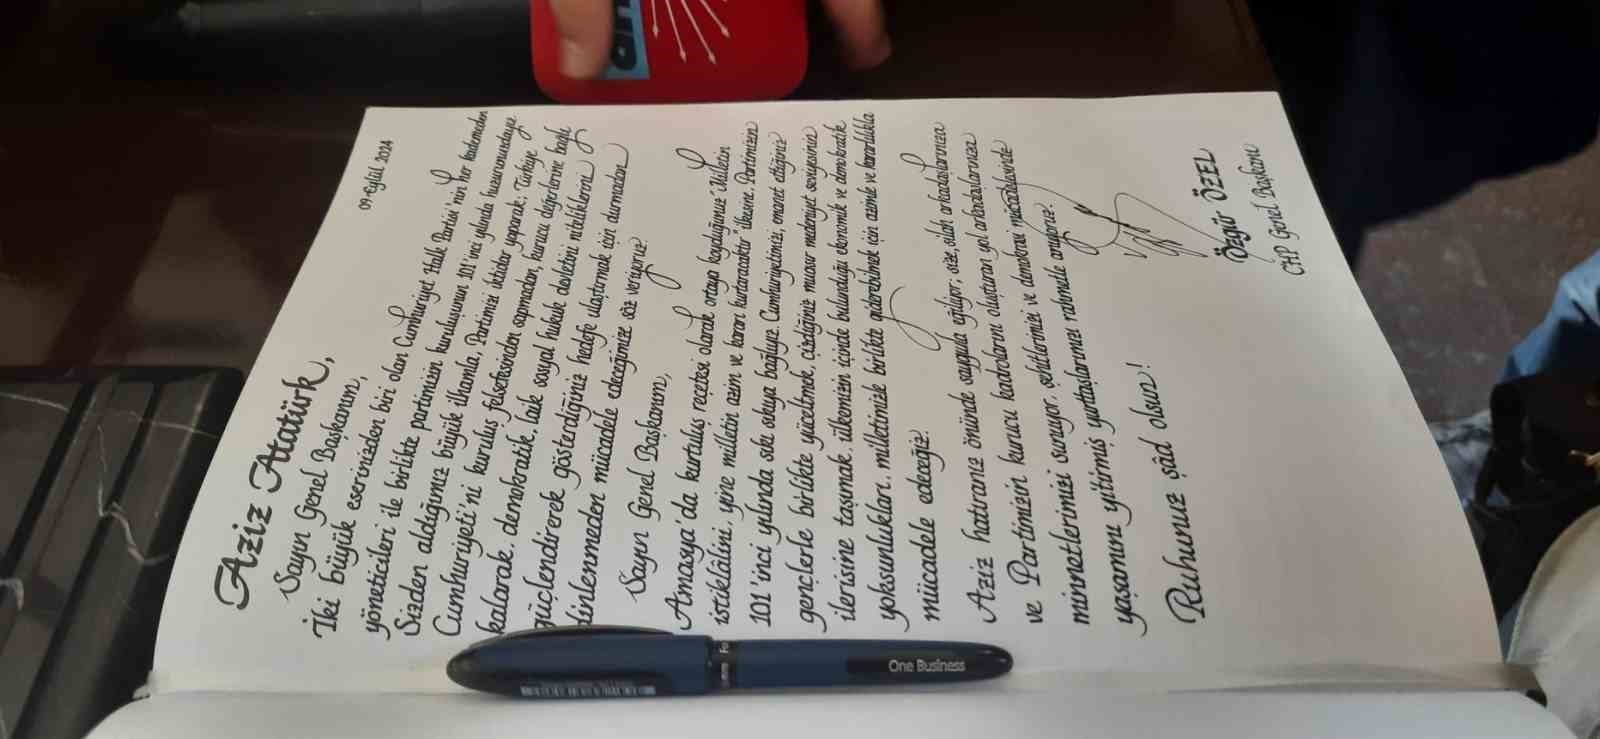 09 Eylül 2024
Aziz Atatürk,
Sayın Genel Başkanım,
İki büyük eserinizden biri olan Cumhuriyet Halk Partisi'nin her kademeden
yöneticileri ile birlikte partimizin kuruluşunun 101'inci yılında huzurunuzdayız.
Sizden aldığımız büyük ilhamla, Partimizi iktidar yaparak; Türkiye
Cumhuriyeti'ni kuruluş felsefesinden sapmadan, kurucu değerlerine bağlı
kalarak, demokratik, laik sosyal hukuk devletini niteliklerini
güçlendirerek gösterdiğiniz hedefe ulaştırmak için durmadan
dinlenmeden mücadele edeceğimize söz veriyoruz.
Sayın Genel Başkanım,
Amasya'da kurtuluş reçetesi olarak ortaya koyduğunuz "Milletin
istiklâlini, yine milletin azim ve kararı kurtaracaktır" ilkesine, Partimizin
101'inci yılında sıkı sıkıya bağlıyız. Cumhuriyetimizi, emanet ettiğiniz
gençlerle birlikte yüceltmek, çizdiğiniz muasır medeniyet seviyesinin
ilerisine taşımak, ülkemizin içinde bulunduğu ekonomik ve demokratik
yoksunlukları, milletimizle birlikte giderebilmek için azimle ve kararlılıkla
mücadele edeceğiz.
Aziz hatıranız önünde saygıyla eğiliyor; size, silah arkadaşlarınıza
ve Partimizin kurucu kadrolarını oluşturan yol arkadaşlarınıza
minnetlerimizi sunuyor, şehitlerimizi ve demokrasi mücadelesinde
yaşamını yitirmiş yurttaşlarımızı rahmetle anıyoruz.
Ruhunuz şâd olsun!
Özgür ÖZEL
CHP Genel Başkanı
One Business